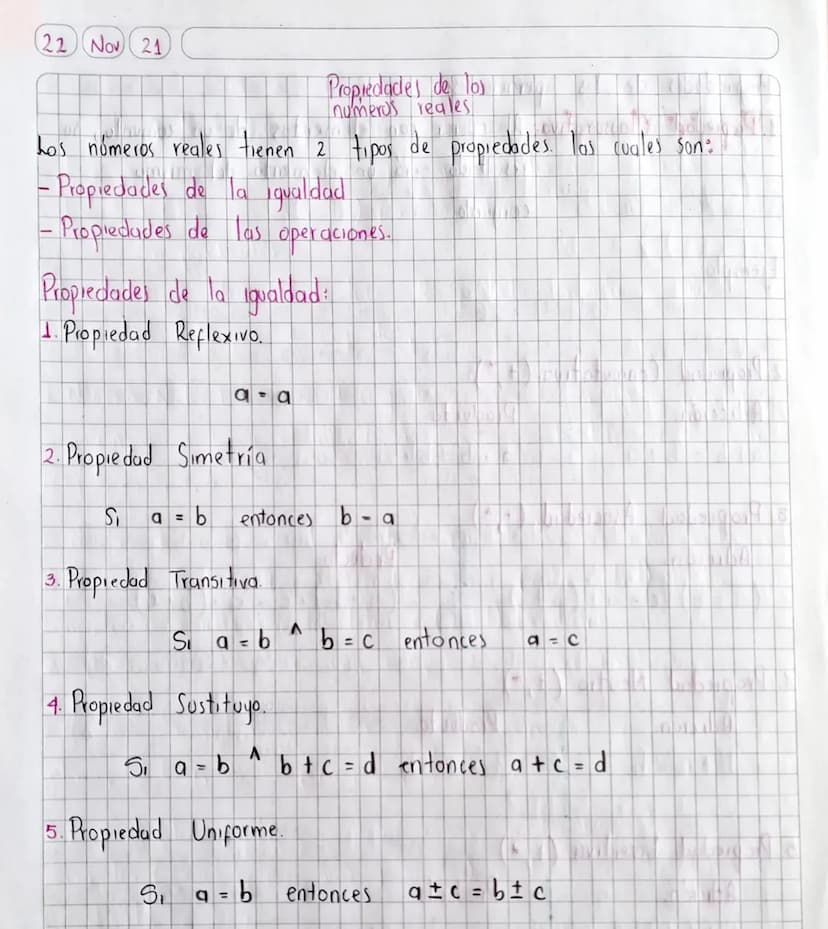 22 Nov 21
Propiedades de los
números reales
Los números reales tienen 2 tipos de propiedades. las cuales son:
- Propiedades de la igualdad
- Propiedades de las operaciones.
Propiedades de la igualdad:
1. Propiedad Reflexivo.
a = a
2. Propiedad Simetría
Si a = b entonces b = a
3. Propiedad Transitiva.
Si a = b ^ b = c entonces a = c
4. Propiedad Sustituyo.
Si a = b ^ b + c = d entonces a + c = d
5. Propiedad Uniforme.
Si a = b entonces a ± c = b ± c